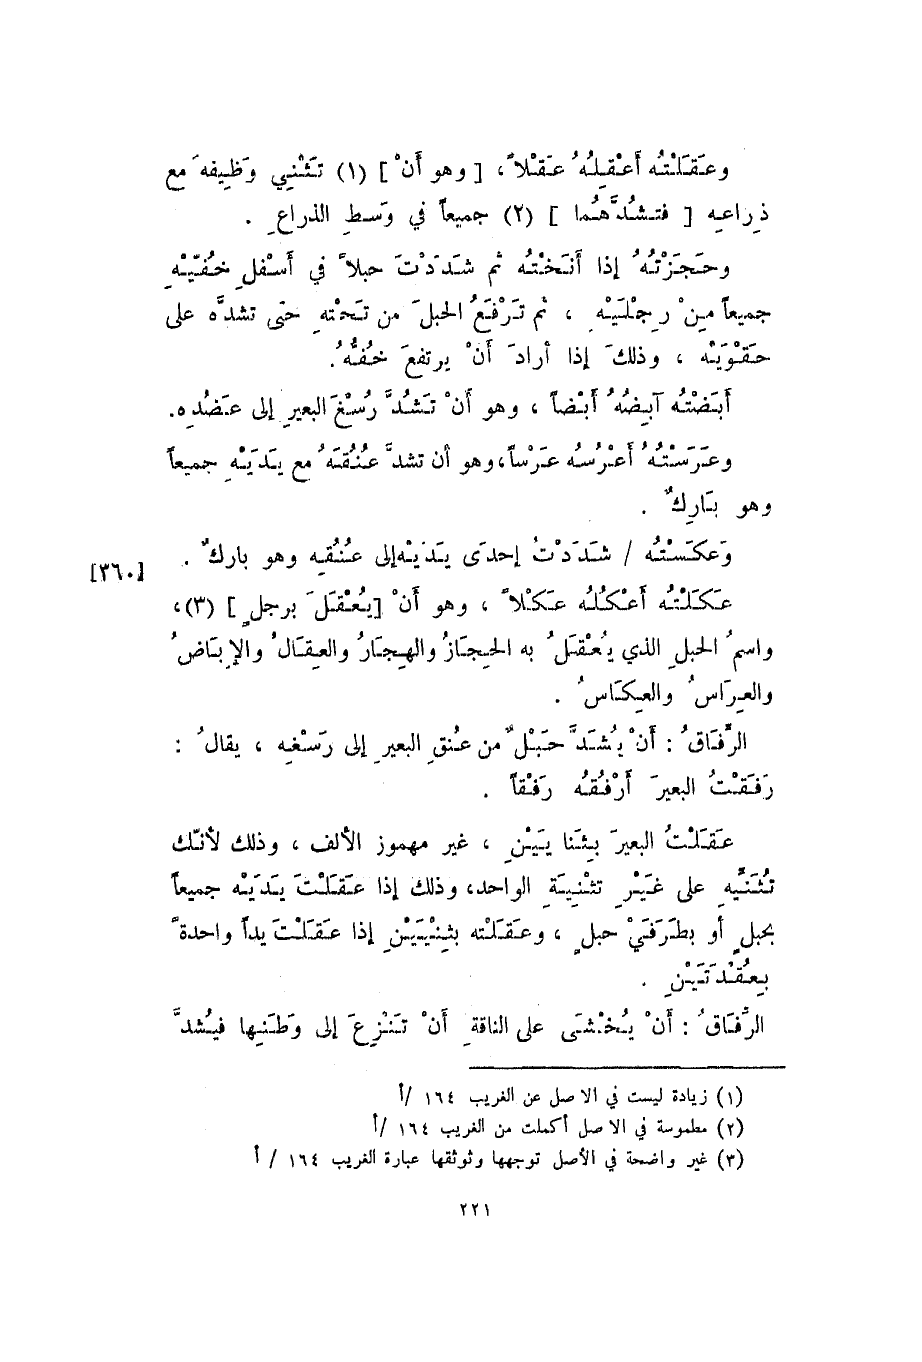 وعَقَلْتُه أعْقِلُهُ عَقْلاً، [ وهو أنْ ] (١) تَثْنِي وَظِيفهَ مع
ذِراعِه [ فتشُدَّهُما ] (٢) جميعاً في وَسطِ الذراعِ .
وحَجَزْتُهُ إذا أنَخْتُه ثم شَدَدْتَ حبلاً في أسْفلِ خُفّيْهِ
جميعاً مِنْ رِجْلَيْهِ ، ثم تَرْفَعُ الحبلَ من تَحْتهِ حتى تشدَّه على
حَقْوَيْه ، وذلكَ إذا أرادَ أنْ يرتفعَ خُفُّهُ.
أبَضْتُه آبِضُهُ أبْضاً ، وهو أنْ تَشُدَّ رُسْغَ البعيرِ إلى عَضُدِه.
وعَرَسْتُهُ أعْرُسُه عَرْساً، وهو أن تشدَّ عُنُقَهُ مع يَدَيْهِ جميعاً
وهو بَارِكٌ .
وَعكَسْتُه / شَدَدْتُ إحدَى يَدَيْه إلى عُنُقِه وهو باركٌ .
[٣٦٠]
عَكَلْتُه أعْكُلُه عَكْلاً ، وهو أنْ [يُعْقَلَ برجلٍ] (٣)،
واسمُ الحبلِ الذي يُعْقَلُ به الحِجَازُ والهِجَارُ والعِقَالُ والإِبَاضُ
والعِرَاسُ والعِكَاسُ .
الرِّفَاقُ : أنْ يُشَدَّ حَبْلٌ من عُنقِ البعيرِ إلى رَسْغِه ، يقالُ :
رَفَقْتُ البعيرَ أرْفُقُه رَفْقاً .
عَقَلْتُ البعيرَ بِثنَا يَيْنِ ، غير مهموز الألف ، وذلك لأنّك
تُثَنّيهِ على غَيْرِ تثْنِيَةِ الواحد، وذلك إذا عَقَلْتَ يَدَيْه جميعاً
بحبلٍ أو بطَرَفَيْ حبلٍ ، وعَقَلْته بثِنْيَيْنِ إذا عَقَلْتَ يداً واحدةً
بِعُقْدَتَيْنِ .
الرِّفَاقُ : أنْ يُخْشَى على الناقةِ أنْ تَنْزِعَ إلى وَطَنِها فيُشدَّ
(١) زيادة ليست في الاصل عن الغريب ١٦٤ /أ
(٢) مطموسة في الاصل أكملت من الغريب ١٦٤ /أ
(٣) غير واضحة في الأصل توجهها وثوثقها عبارة الغريب ١٦٤ / أ
٢٢١